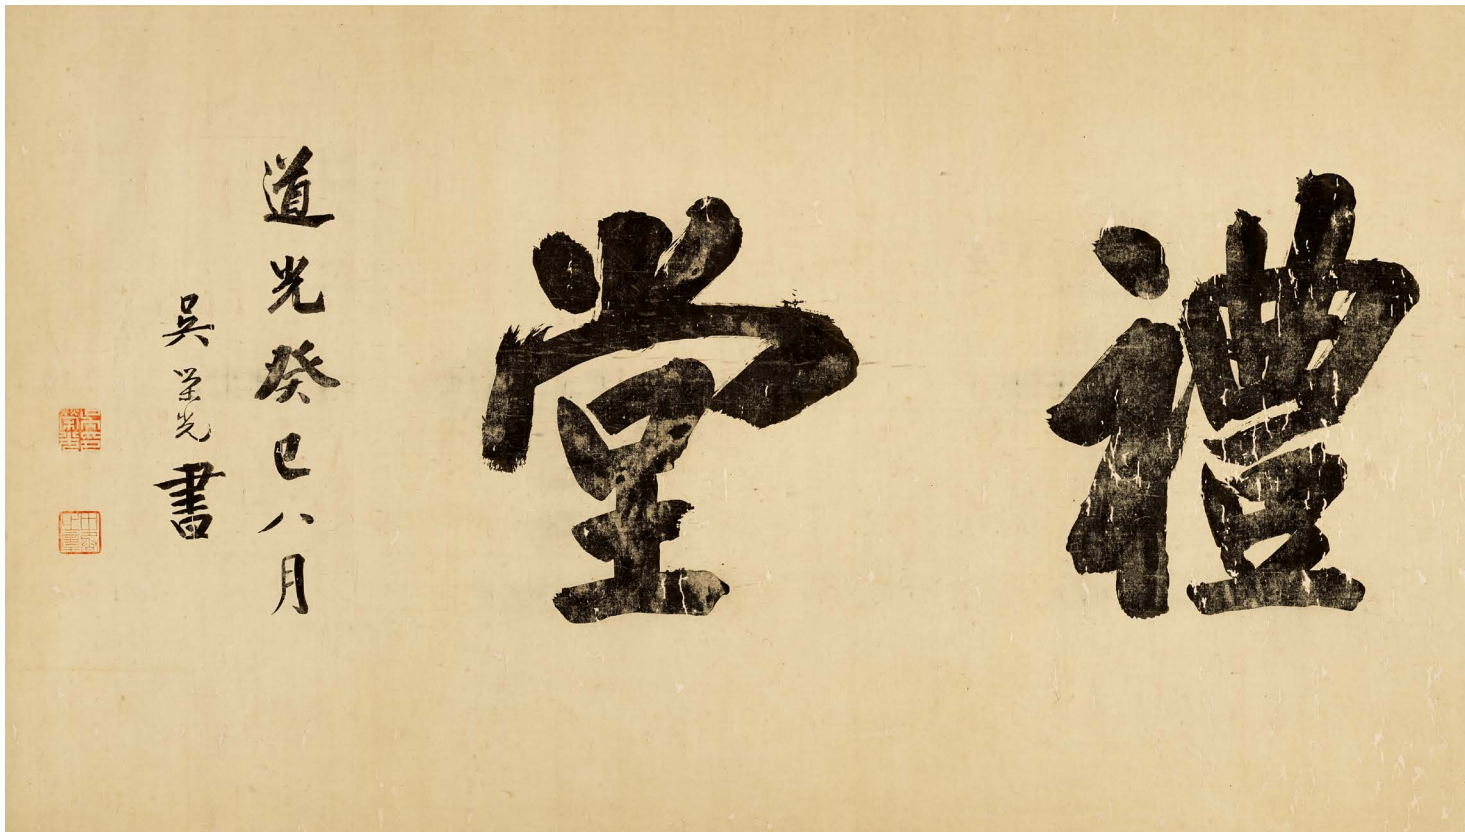 禮堂
道光癸巳八月
吳榮光書